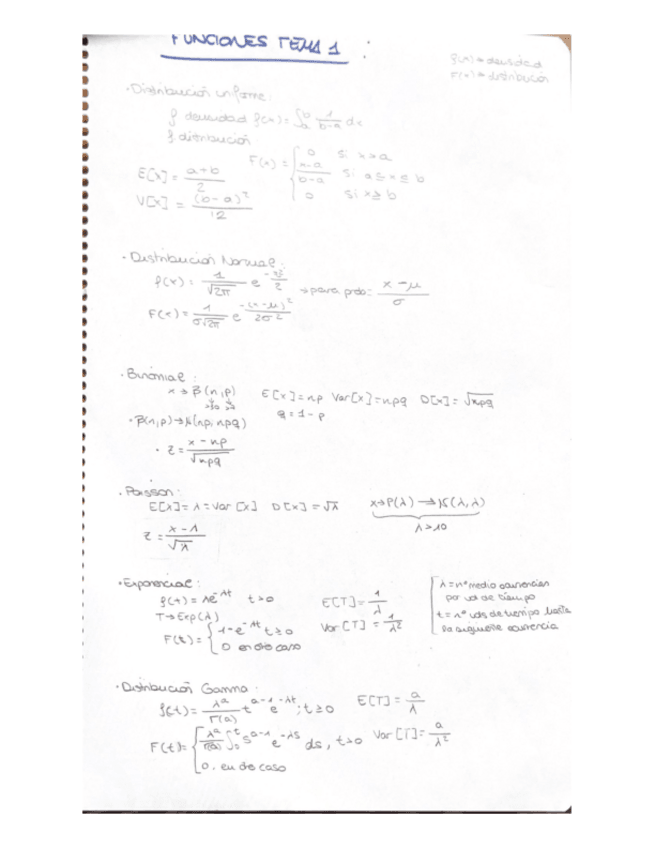 FUNCIONES TEMA 1 :
f(x) → densidad
F(x) → distribución
· Distribución uniforme:
f densidad f(x) = ∫_a^b 1/(b-a) dx
f. distribución
F(x) = { 0 si x>a
x-a/b-a si a≤x≤b
0 si x≥b
E[x] = a+b/2
V[x] = (b-a)²/12
· Distribución Normal:
f(x) = 1/√2π e → para prob: x-μ/σ
F(x) = 1/σ√2π e^-(x-μ)²/2σ²
· Binomial:
x → β(n,p) E[x] = np Var[x] = npq D[x] = √npq
q = 1-p
· β(n,p) → N(np, npq)
· z = x-np/√npq
· Poisson:
E[x] = λ = Var [x] D[x] = √λ x→P(λ) → N(λ,λ)
λ>10
z = x-λ/√λ
· Exponencial:
f(t) = λe^-λt t>0 E[T] = 1/λ
T→Exp(λ)
F(t) = { 1-e^-λt t≥0 Var[T] = 1/λ²
0 en otro caso
λ = nº medio ocurrencias
por ud de tiempo
t = nº uds de tiempo hasta
la siguiente ocurrencia
· Distribución Gamma:
f(t) = λ^a/Γ(a) t^a-1 e^-λt ; t≥0 E[T] = a/λ
F(t) = { λ^a/Γ(a) ∫_0^t s^a-1 e^-λs ds, t>0 Var[T] = a/λ²
0, en otro caso